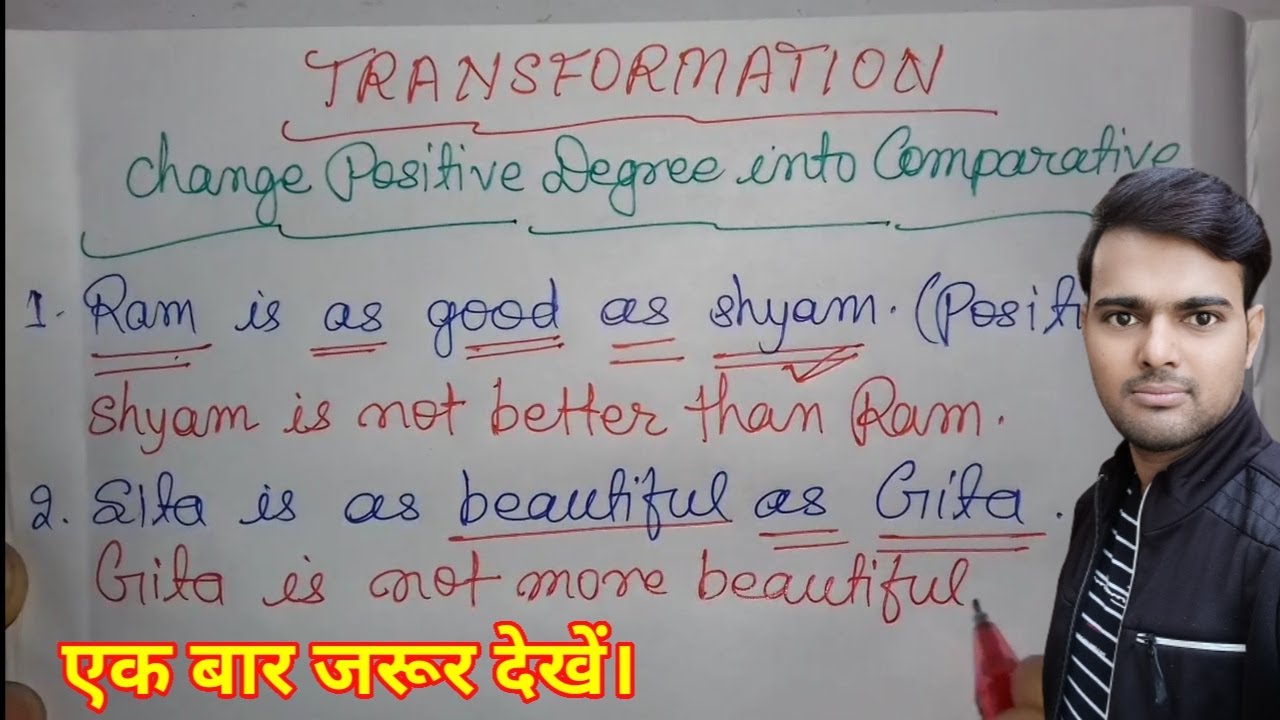 TRANSFORMATION
Change Positive Degree into Comparative
1. Ram is as good as shyam. (Positi
shyam is not better than Ram.
2. Sita is as beautiful as Gita.
Gita is not more beautiful
एक बार जरूर देखें।